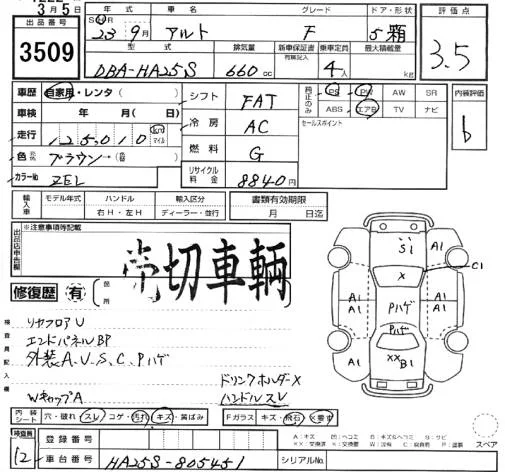 3月5日
出品番号
3509
年 月 車名 グレード ドア・形状
23 9月 アルト F 5 箱
評価点
3.5
型式 排気量 新車保証書 乗車定員 最大積載量
有無記入
DBA-HA25S 660cc 4人 kg
車歴 自家用・レンタ( )
シフト FAT
純正のみ PS PW AW SR
ABS エアB TV ナビ
内装評価
b
車検 年 月( 日)
冷房 AC
セールスポイント
走行 125,010 km マイル
燃料 G
色 元色 ブラウン→(替 )
リサイクル料金 8840円
カラーNo ZEL
輸入車 モデル年式 ハンドル 輸入区分 書類有効期限
右H・左H ディーラー・並行 月 日迄
出品店申告欄
※注意事項等記載
売切車輌
修復歴 有 箇所
検査員記入欄
リヤフロアU
エンドパネルBP
外装A、U、S、C、Pハゲ
ドリンクホルダーX
WキャップA ハンドルスレ
内装シート 穴・破れ スレ コゲ・汚れ キズ・黄ばみ
Fガラス キズ・飛石 X要す
S1
A1 A1
C1
X
A1 A1 Pハゲ A1 A1
Pハゲ
A1 XX B1 A1
スペア
検査員
12
登録番号
車台番号 HA25S-805451
シリアルNo.